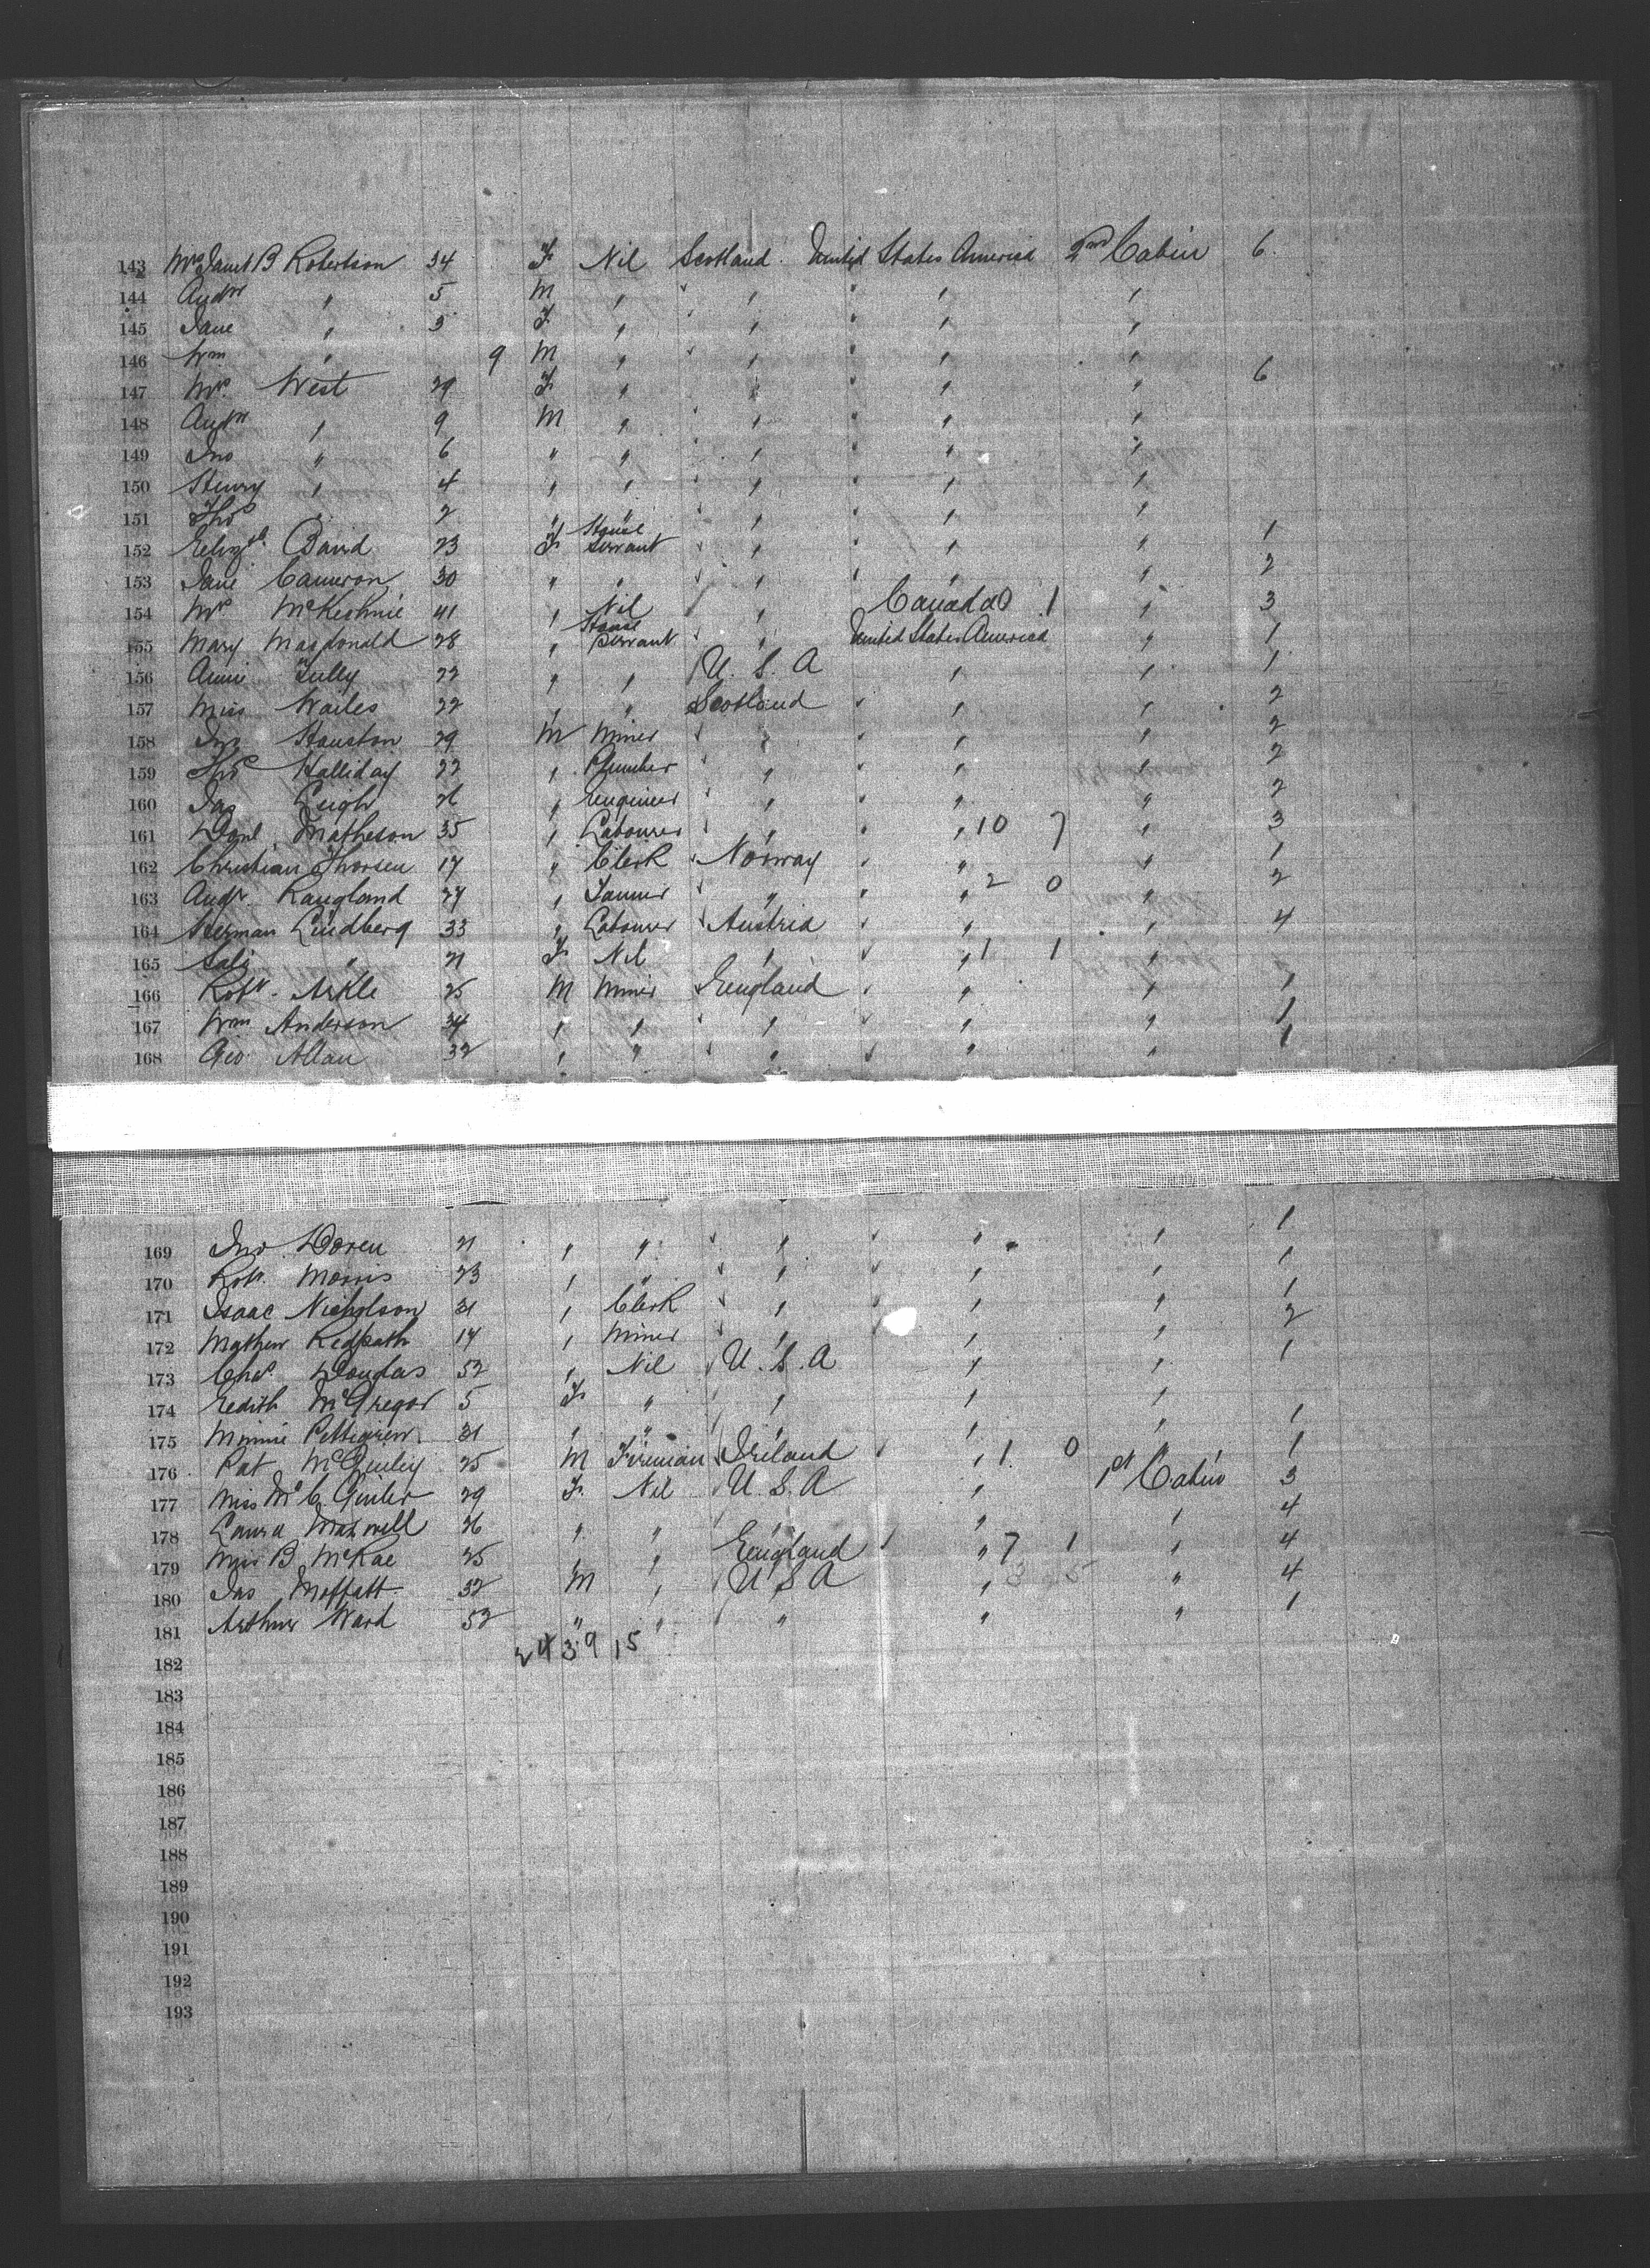 143 Mrs Janet B Robertson 34 F Nil Scotland United States America 2nd Cabin 6
144 Andw " 5 M " " " " " "
145 Jane " 3 F " " " " " "
146 Wm " 9 M " " " " " "
147 Mrs West 29 F " " " " " " 6
148 Andw " 9 M " " " " " "
149 Jno " 6 " " " " " "
150 Henry " 4 " " " " " " "
151 Thos " 2 " " " " " "
152 Elizth Baird 23 F House Servant " " " " 1
153 Jane Cameron 30 " " " " " " 2
154 Mrs McKechnie 41 " Nil " Canada 0 1 " 3
155 Mary Macdonald 28 " House Servant " United States America " 1
156 Annie Tully 22 " " U. S. A " " 1
157 Miss Wailes 22 " " Scotland " " " 2
158 Jno Houston 29 M Miner " " " " 2
159 Thos Halliday 22 " Plumber " " " 2
160 Jas Leigh 26 " Engineer " " " 2
161 Donl Matheson 35 " Labourer " " 10 7 " 3
162 Christian Thorsen 17 " Clerk Norway " " 1
163 Andr. Raugland 27 " Farmer " " 2 0 " 2
164 Herman Lindberg 33 " Labourer Austria " " 4
165 Sali " 21 F Nil " " 1 1 "
166 Robt. Arkle 25 M Miner England " " 1
167 Wm Anderson 34 " " " " " 1
168 Geo Allan 32 " " " " " 1
169 Jno Doren 21 " " " " " 1
170 Robt. Morris 23 " " " " " 1
171 Isaac Nicholson 31 " Clerk " " " 1
172 Mathew Redpath 17 " Miner " " " 2
173 Chas Douglas 52 " Nil U. S. A " " 1
174 Edith McGregor 5 F " " " "
175 Minnie Pettigrew 31 " " " " " 1
176 Pat McGinley 25 M Fireman Ireland " 1 0 " 1
177 Miss McC. 29 F Nil U. S. A " 1st Cabin 3
178 Laura Maxwell 26 " " " " " 4
179 Miss B McRae 25 " " England " 7 1 " 4
180 Jas Moffatt 32 M " U S A " 3 5 " 4
181 Arthur Ward 52 " " " " " 1
182 24 3 9 15
183
184
185
186
187
188
189
190
191
192
193